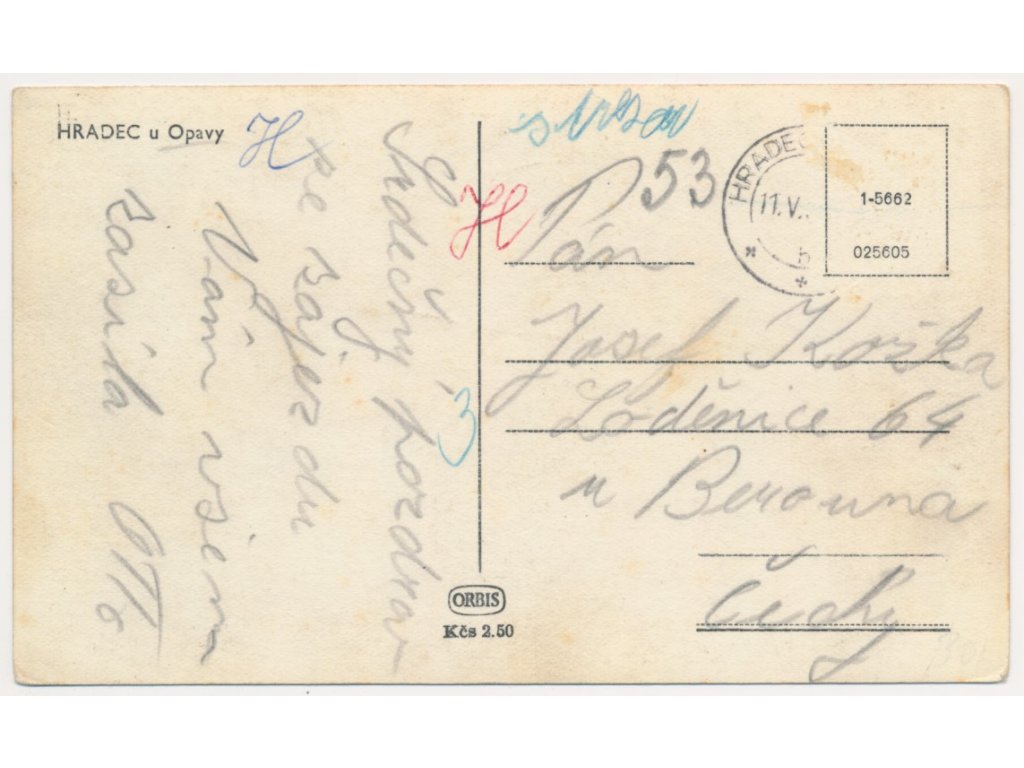 HRADEC u Opavy
H
Srdečný pozdrav
ze zájezdu
Vám všem
zasílá Otto
H
3
ORBIS
Kčs 2.50
53
HRADEC
11.V.
b
1-5662
025605
Pán
Josef Koška
Loděnice 64
u Berouna
Čechy